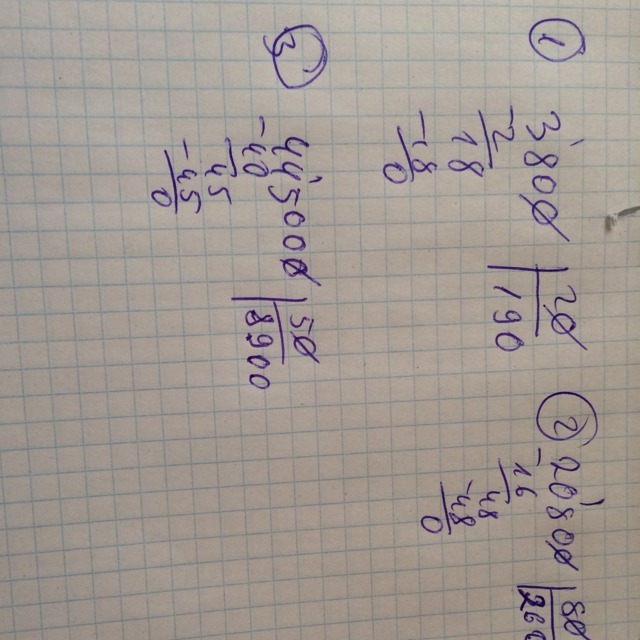 1
3800 20
-2 190
18
-18
0
2
20800 80
-16 260
48
-48
0
3
445000 50
-40 8900
45
-45
0